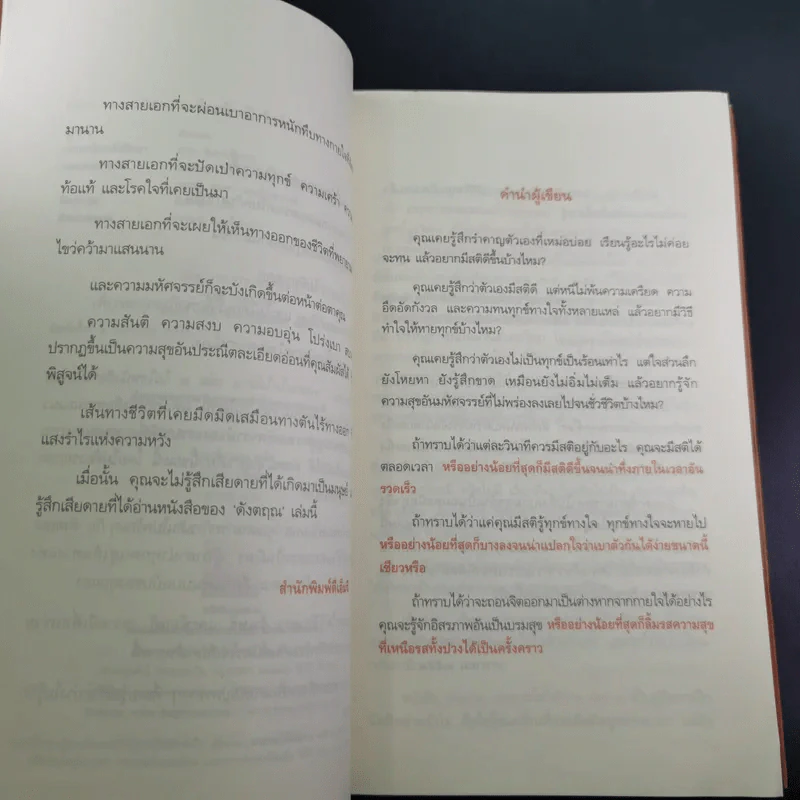 ทางสายเอกที่จะผ่อนเบาอาการหนักทึบทางกาย
มานาน
ทางสายเอกที่จะปัดเป่าความทุกข์ ความเศร้า
ท้อแท้ และโรคใจที่เคยเป็นมา
ทางสายเอกที่จะเผยให้เห็นทางออกของชีวิตที่พยายาม
ไขว่คว้ามาแสนนาน
และความมหัศจรรย์ก็จะบังเกิดขึ้นต่อหน้าต่อตาคุณ
ความสันติ ความสงบ ความอบอุ่น โปร่งเบา
ปรากฏขึ้นเป็นความสุขอันประณีตละเอียดอ่อนที่คุณสัมผัสได้
พิสูจน์ได้
เส้นทางชีวิตที่เคยมืดมิดเสมือนทางตันไร้ทางออก
แสงรำไรแห่งความหวัง
เมื่อนั้น คุณจะไม่รู้สึกเสียดายที่ได้เกิดมาเป็นมนุษย์
รู้สึกเสียดายที่ได้อ่านหนังสือของ 'ดังตฤณ' เล่มนี้
สำนักพิมพ์ดีเอ็มจี
คำนำผู้เขียน
คุณเคยรู้สึกรำคาญตัวเองที่เหม่อบ่อย เรียนรู้อะไรไม่ค่อย
จะทน แล้วอยากมีสติดีขึ้นบ้างไหม?
คุณเคยรู้สึกว่าตัวเองมีสติดี แต่หนีไม่พ้นความเครียด ความ
อึดอัดกังวล และความทนทุกข์ทางใจทั้งหลายแหล่ แล้วอยากมีวิธี
ทำใจให้หายทุกข์บ้างไหม?
คุณเคยรู้สึกว่าตัวเองไม่เป็นทุกข์เป็นร้อนเท่าไร แต่ใจส่วนลึก
ยังโหยหา ยังรู้สึกขาด เหมือนยังไม่อิ่มไม่เต็ม แล้วอยากรู้จัก
ความสุขอันมหัศจรรย์ที่ไม่พร่องลงเลยไปจนชั่วชีวิตบ้างไหม?
ถ้าทราบได้ว่าแต่ละวินาทีควรมีสติอยู่กับอะไร คุณจะมีสติได้
ตลอดเวลา หรืออย่างน้อยที่สุดก็มีสติดีขึ้นจนน่าทึ่งภายในเวลาอัน
รวดเร็ว
ถ้าทราบได้ว่าแค่คุณมีสติรู้ทุกข์ทางใจ ทุกข์ทางใจจะหายไป
หรืออย่างน้อยที่สุดก็บางลงจนน่าแปลกใจว่าเบาตัวกันได้ง่ายขนาดนี้
เชียวหรือ
ถ้าทราบได้ว่าจะถอนจิตออกมาเป็นต่างหากจากกายใจได้อย่างไร
คุณจะรู้จักอิสรภาพอันเป็นบรมสุข หรืออย่างน้อยที่สุดก็ลิ้มรสความสุข
ที่เหนือรสทั้งปวงได้เป็นครั้งคราว